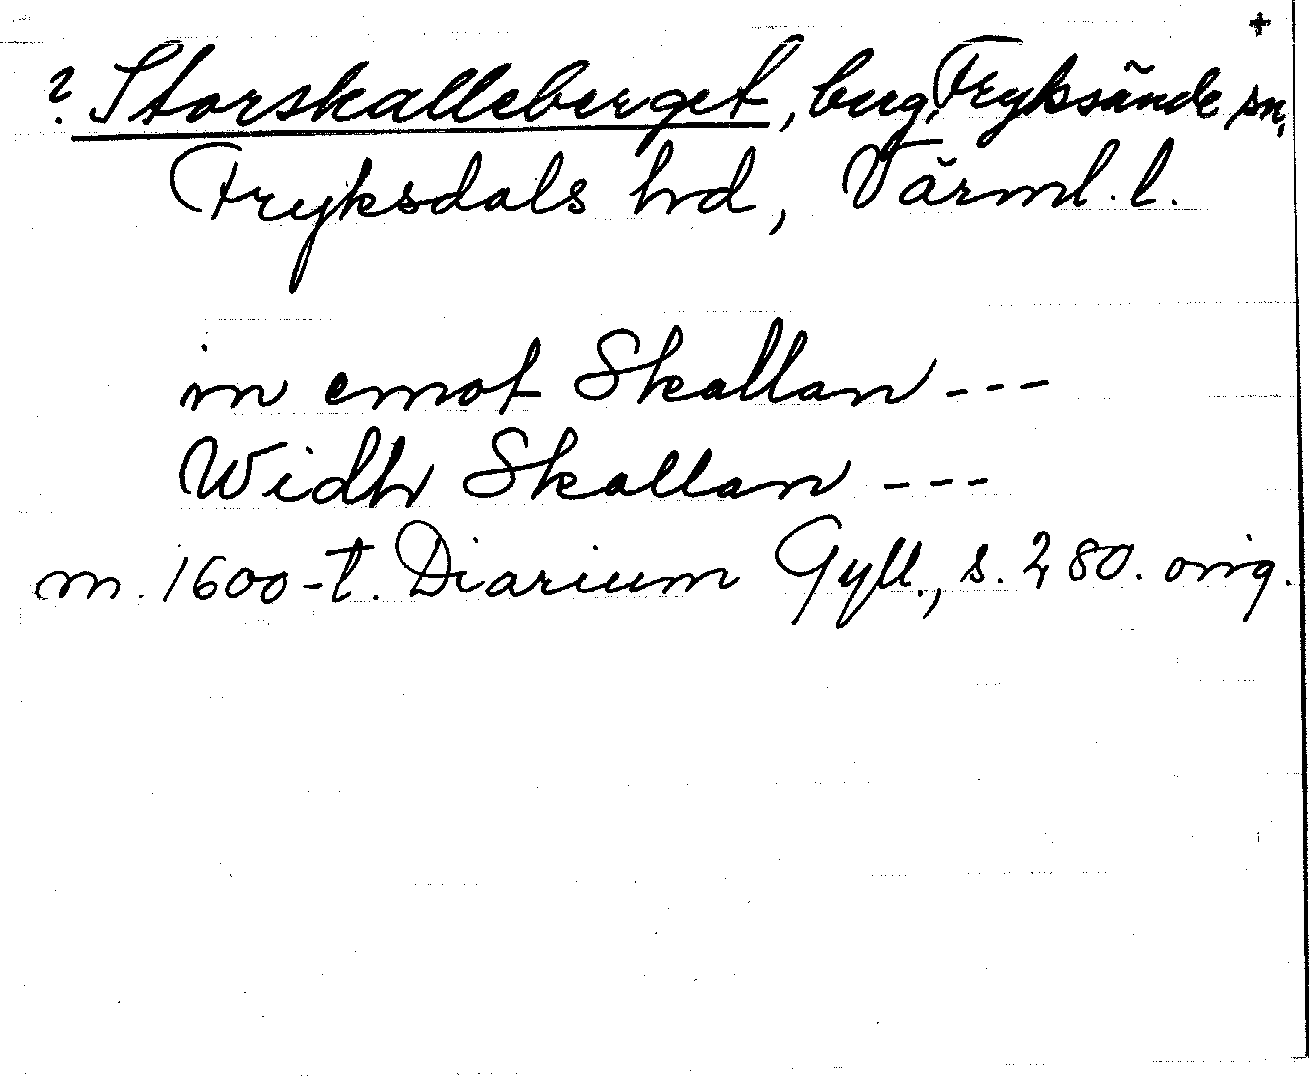 +
? Storskalleberget, berg, Fryksände sn,
Fryksdals hd, Värml. l.
in emot Skallan ---
Widh Skallan ---
m. 1600-t. Diarium Gyll., s. 280. orig.